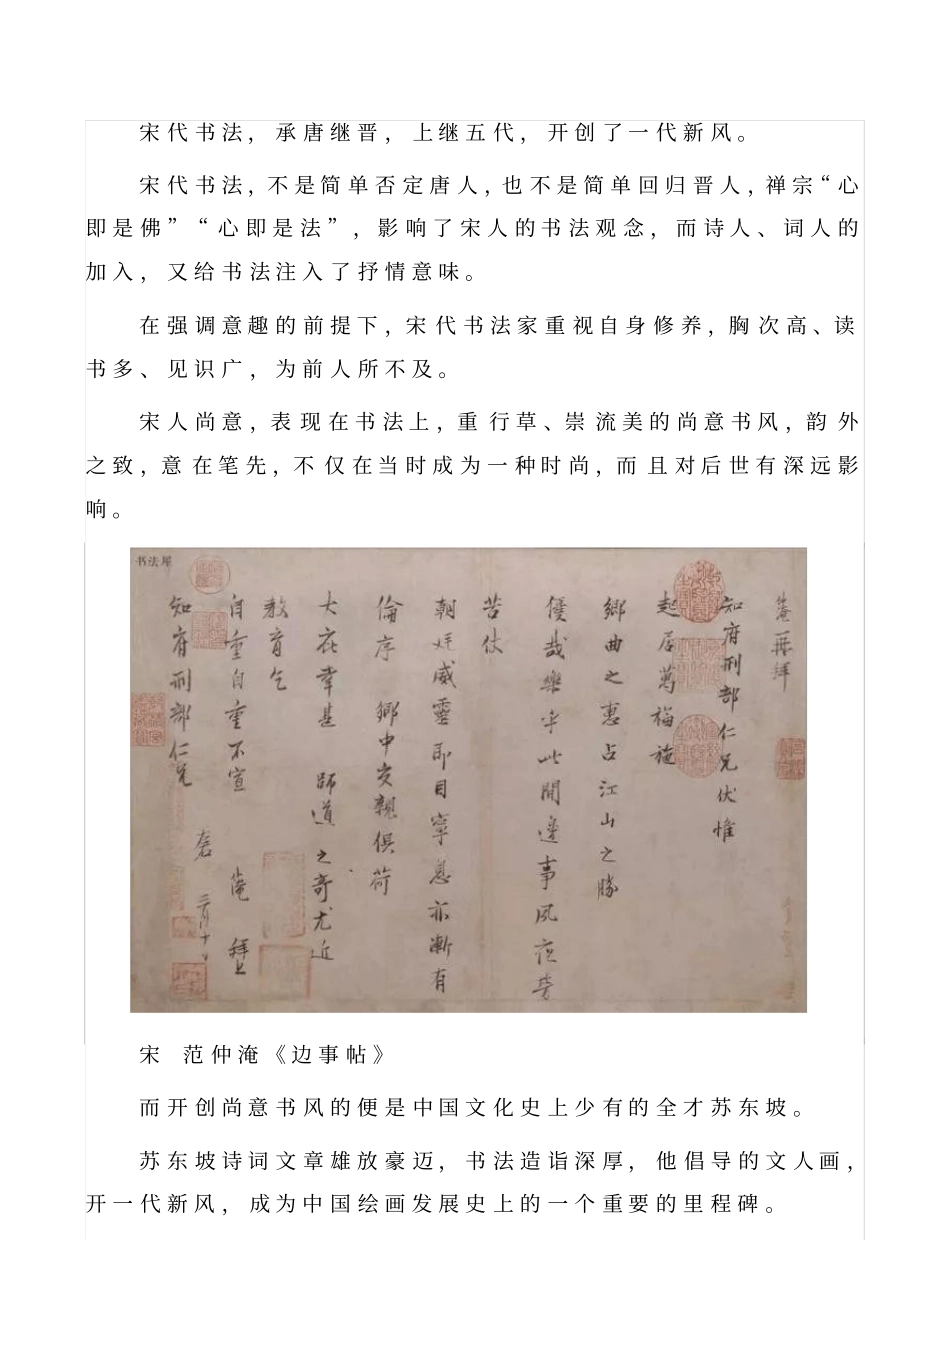 宋代书法，承唐继晋，上继五代，开创了一代新风。
宋代书法，不是简单否定唐人，也不是简单回归晋人，禅宗“心
即是佛”“心即是法”，影响了宋人的书法观念，而诗人、词人的
加入，又给书法注入了抒情意味。
在强调意趣的前提下，宋代书法家重视自身修养，胸次高、读
书多、见识广，为前人所不及。
宋人尚意，表现在书法上，重行草、崇流美的尚意书风，韵外
之致，意在笔先，不仅在当时成为一种时尚，而且对后世有深远影
响。
书法屋
再拜
知府刑部仁兄伏惟
起居萬福施
鄉曲之惠占江山之勝
優哉樂乎此間邊事夙夜勞
苦仗
朝廷威靈即目寧息亦漸有
倫序 鄉中交親俱荷
大庇幸甚 師道之奇尤近
教育乞
自重自重不宣 淹 拜上
知府刑部仁兄
三月十
宋 范仲淹《边事帖》
而开创尚意书风的便是中国文化史上少有的全才苏东坡。
苏东坡诗词文章雄放豪迈，书法造诣深厚，他倡导的文人画，
开一代新风，成为中国绘画发展史上的一个重要的里程碑。